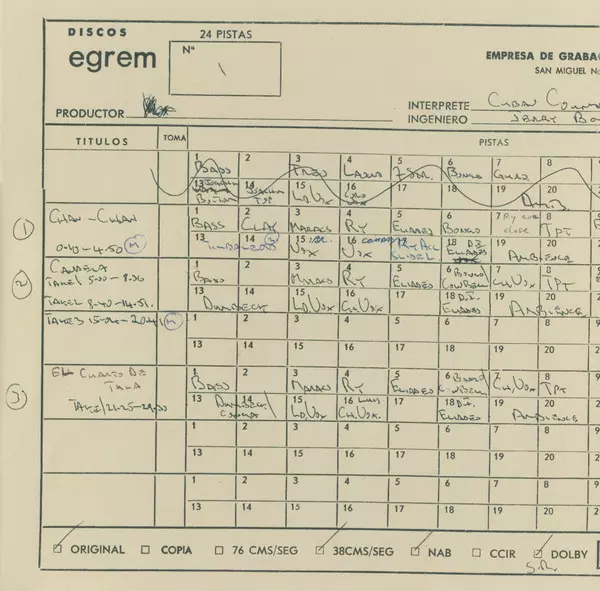 DISCOS
24 PISTAS
egrem
Nº
EMPRESA DE GRABAC
SAN MIGUEL No
PRODUCTOR
INTERPRETE CUBAN
INGENIERO JERRY Bo
TITULOS TOMA PISTAS
1 BASS 2 3 TRES 4 5 6 BONGO 7 8
13 14 JOACHIM TOP 15 LD,VOX 16 17 18 19 20
1 CHAN-CHAN
1 BASS 2 CLAY 3 MARACS 4 RY 5 ELIADES 6 BONGO 7 RY 8 TPT
0-43-4.50 M
13 14 15 VOX 16 VOX 17 RY ACC SLIDE 18 D.I. ELIADES 19 AMBIENCE 20
2 CANDELA
TAKE 1 5-00-8.36
1 BASS 2 3 MARACS 4 RY 5 ELIADES 6 BONGO COWBELL 7 CH,VOX 8 TPT
TAKE 2 8-40-14.51.
13 DUMBECK 14 15 LD,VOX 16 CH,VOX 17 18 D.I. ELIADES 19 AMBIENCE 20
TAKE 3 15-06-2044 M
1 2 3 4 5 6 7 8
13 14 15 16 17 18 19 20
3 EL CUARTO DE TULA
1 BASS 2 3 MARACS 4 RY 5 ELIADES 6 BONGO COWBELL 7 CH,VOX 8 TPT
TAKE 1 21-25-29.00
13 DUMBECK 14 CONGA 15 LD,VOX 16 CH,VOX. 17 18 D.I. ELIADES 19 AMBIENCE 20
1 2 3 4 5 6 7 8
13 14 15 16 17 18 19 20
1 2 3 4 5 6 7 8
13 14 15 16 17 18 19 20
ORIGINAL COPIA 76 CMS/SEG 38CMS/SEG NAB CCIR DOLBY
S.R.